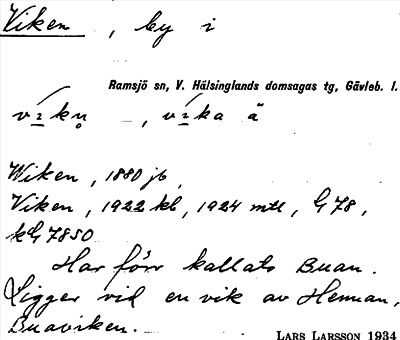 Viken, by i
Ramsjö sn, V. Hälsinglands domsagas tg, Gävleb. l.
vi̱kn̥ –, vi̱ka ä
Wiken, 1880 jb
Viken, 1922 kb, 1924 mtl, G 78,
kG 7850
Har förr kallats Buan.
Ligger vid en vik av Hennan,
Buaviken.
LARS LARSSON 1934